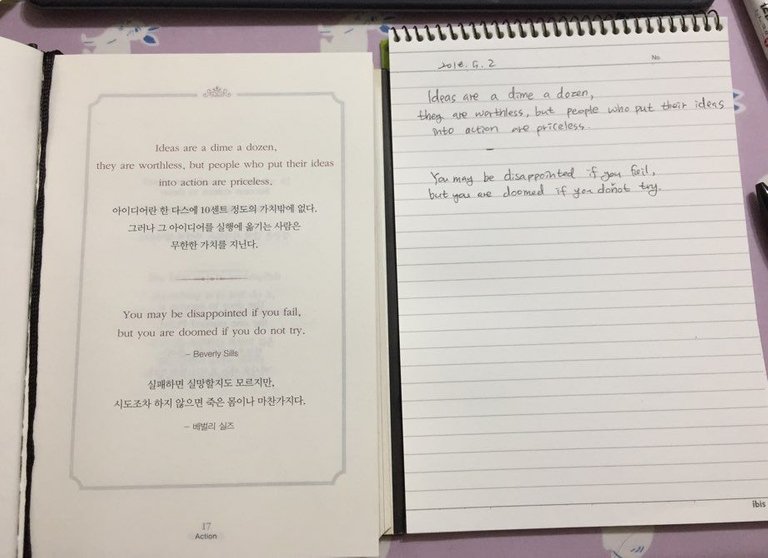 Ideas are a dime a dozen,
they are worthless, but people who put their ideas
into action are priceless.
아이디어란 한 다스에 10센트 정도의 가치밖에 없다.
그러나 그 아이디어를 실행에 옮기는 사람은
무한한 가치를 지닌다.
You may be disappointed if you fail,
but you are doomed if you do not try.
– Beverly Sills
실패하면 실망할지도 모르지만,
시도조차 하지 않으면 죽은 몸이나 마찬가지다.
– 베벌리 실즈
17
Action
2018. 5. 2
No
Ideas are a dime a dozen,
they are worthless, but people who put their ideas
into action are priceless.
You may be disappointed if you fail,
but you are doomed if you do not try.
ibis